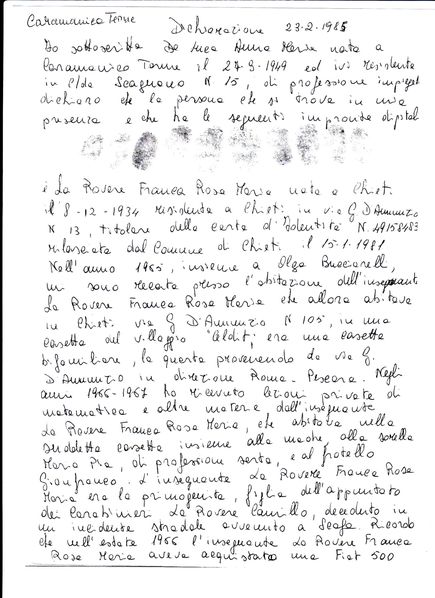 Caramanico Terme
Dichiarazione 23-2-1985
Io sottoscritta De Luca Anna Maria nata a
Caramanico Terme il 27-9-1949 ed ivi residente
in C/da Scagnano N 15, di professione
dichiaro che la persona che si trova in mia
presenza e che ha le seguenti impronte digitali
è La Rovere Franca Rosa Maria nata a Chieti
il 8-12-1934 residente a Chieti in via G D'Annunzio
N 13, titolare della carta d'Identità N 49158483
rilasciata dal Comune di Chieti il 15-1-1981
Nell'anno 1965, insieme a Olga
mi sono recata presso l'abitazione dell'insegnante
La Rovere Franca Rosa Maria che allora abitava
in Chieti via G D'Annunzio N 105, in una
casetta del villaggio Aldit; era una casetta
bifamiliare, la quarta provenendo da via G.
D'Annunzio in direzione Roma-Pescara. Negli
anni 1966-1967 ho ricevuto lezioni private di
matematica e altre materie dall'insegnante
La Rovere Franca Rosa Maria, che abitava nella
suddetta casetta insieme alla madre, alla sorella
Maria Pia, di professione sarta, e al fratello
Gianfranco. L'insegnante La Rovere Franca Rosa
Maria era la primogenita, figlia dell'appuntato
dei Carabinieri La Rovere Camillo, deceduto in
un incidente stradale avvenuto a Scafa. Ricordo
che nell'estate 1966 l'insegnante La Rovere Franca
Rosa Maria aveva acquistato una Fiat 500